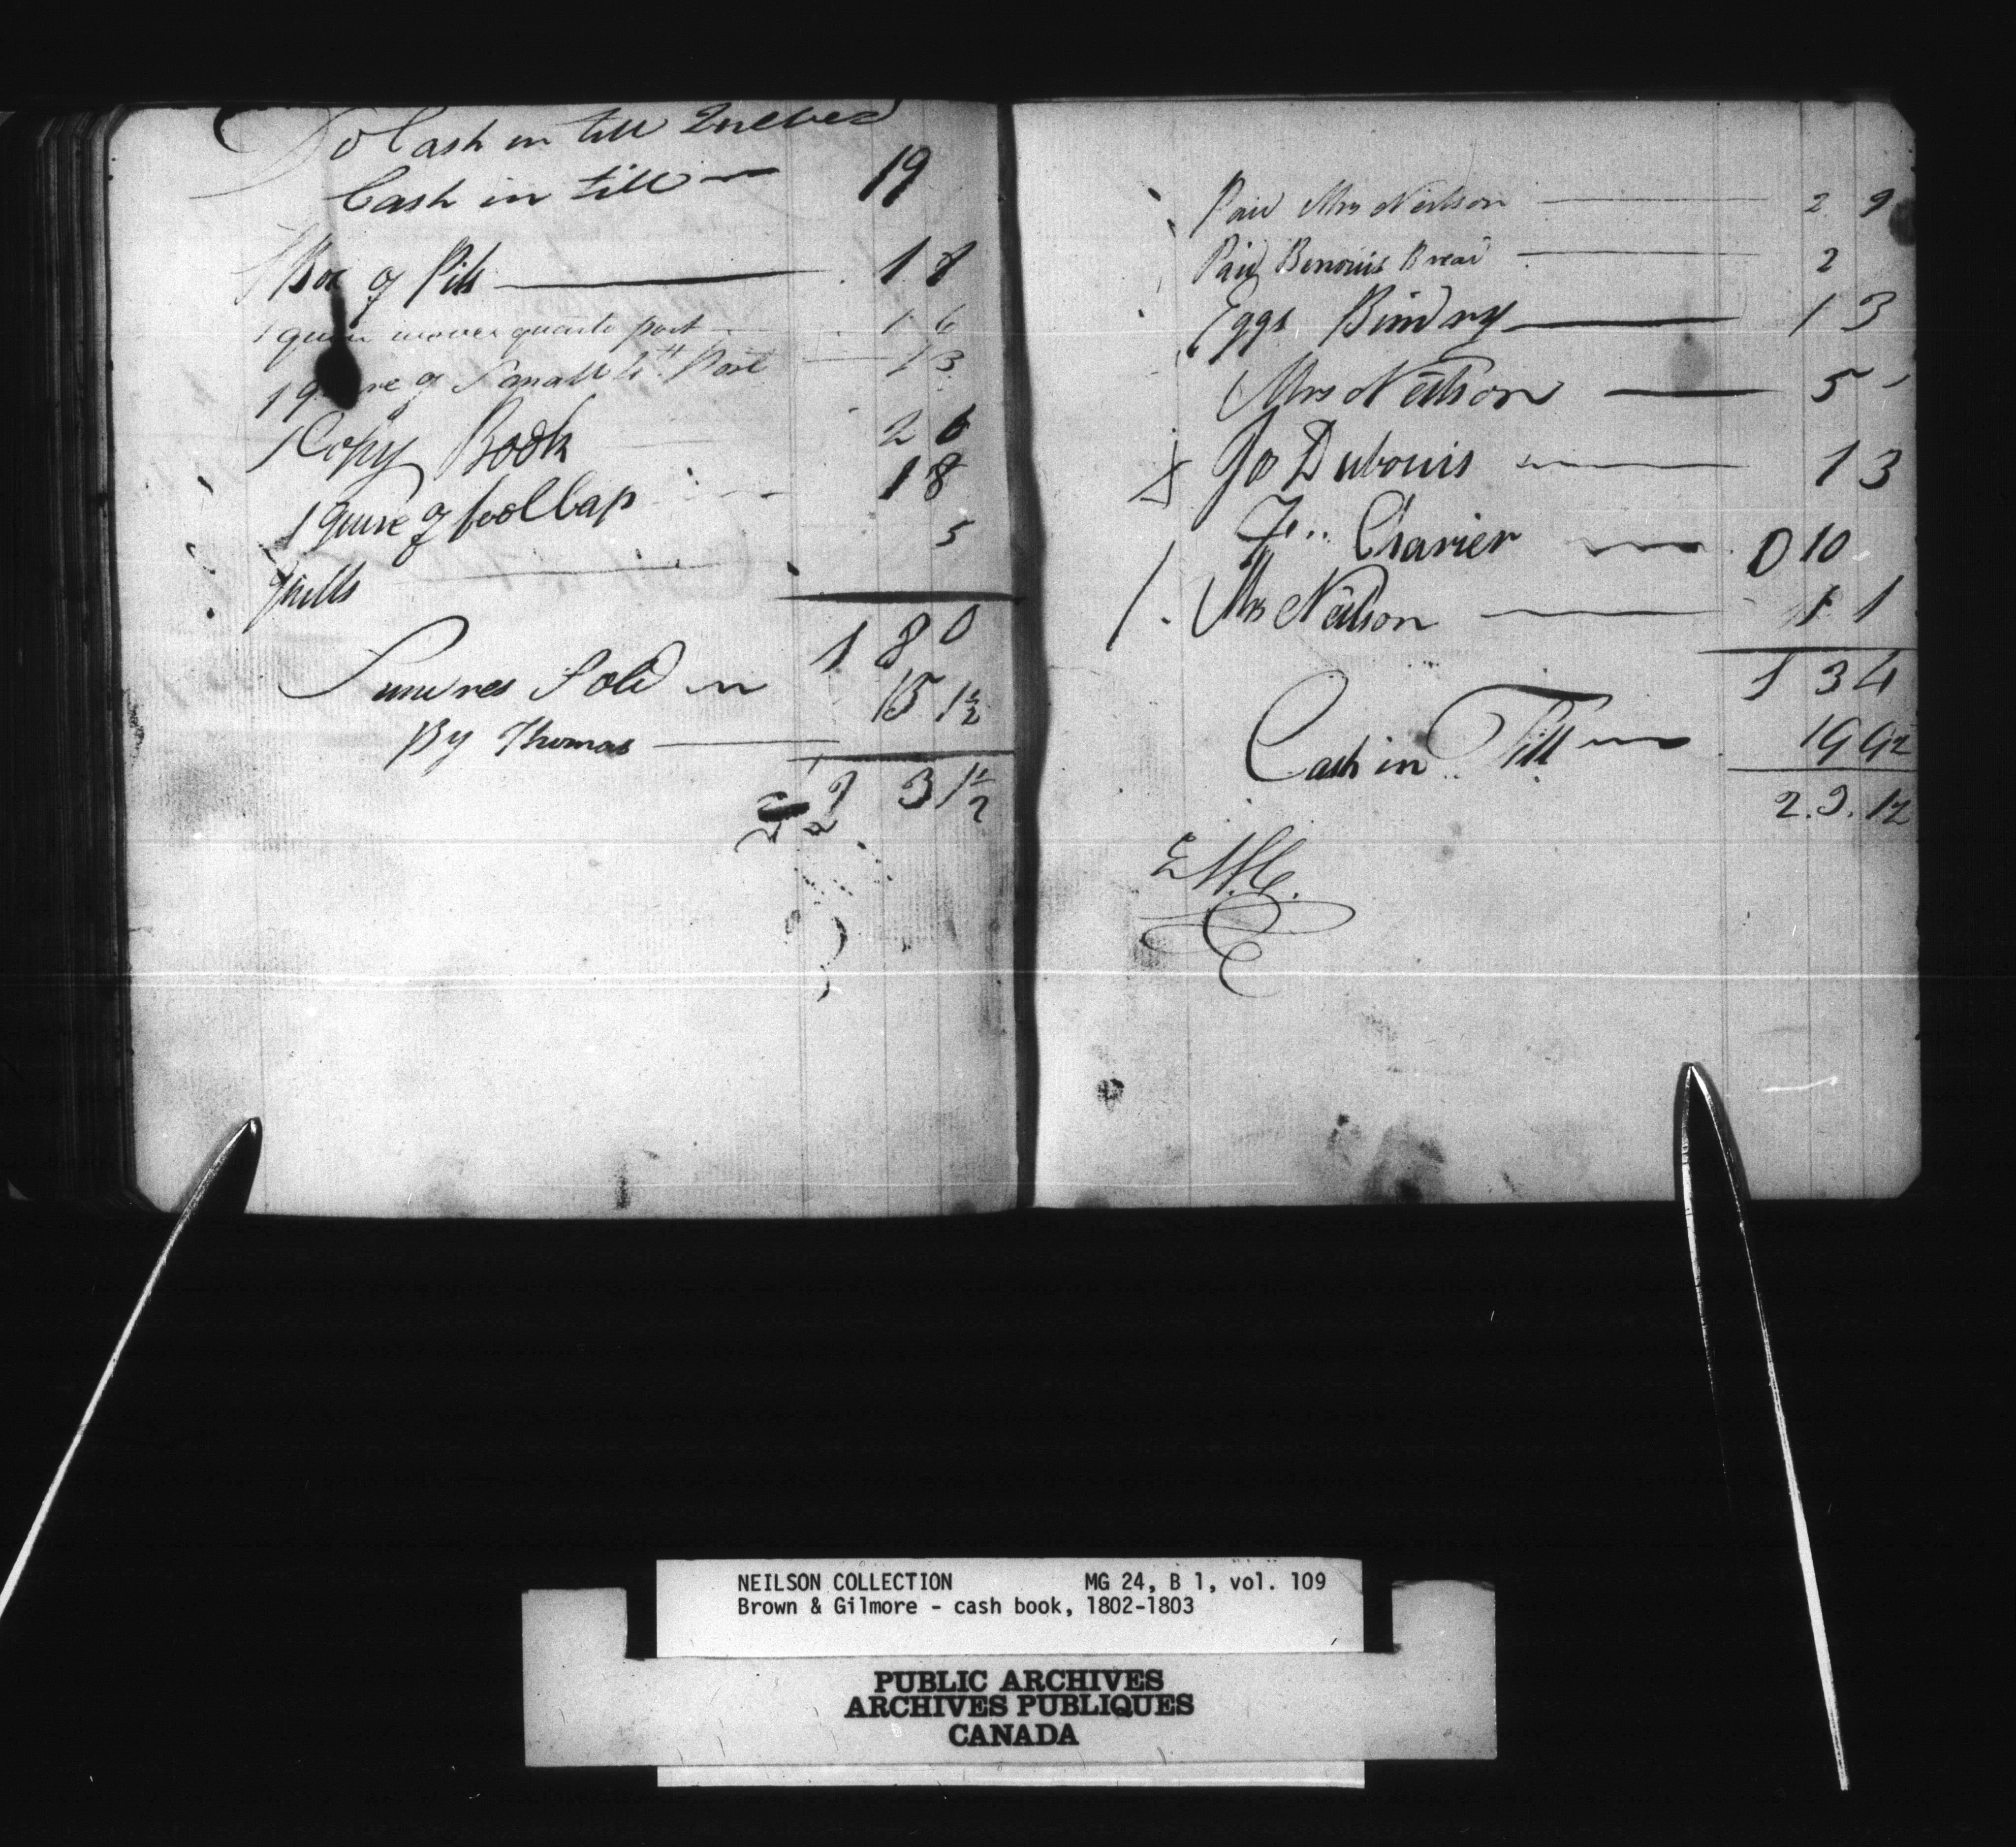 To Cash in till Quebec
Cash in till 19
1 Box of Pills 1 8
1 quire wove quarto post 1 6
1 quire of Small 4to Post 1 3
1 Copy Book 2 6
1 Quire of foolCap 1 8
Quills 5
1 8 0
Sundres Sold
By Thomas 15 1½
2 3 1½
Paid Mrs Neilson 2 9
Paid Bread 2
Eggs Bindry 1 3
Mrs Neilson 5
Jo Dubouis 1 3
Charier 0 10
Mrs Neilson 11 1
1 3 4
Cash in Till 19 9½
2.3.1½
NEILSON COLLECTION MG 24, B 1, vol. 109
Brown & Gilmore - cash book, 1802-1803
PUBLIC ARCHIVES
ARCHIVES PUBLIQUES
CANADA